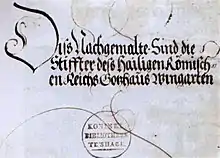 Dis Nachgemalte Sind die
Stiffter deß Hailigen Römisch
en Reichs Gotzhaus Wingarten
KONINKL
BIBLIOTHEEK
TE'SHAGE